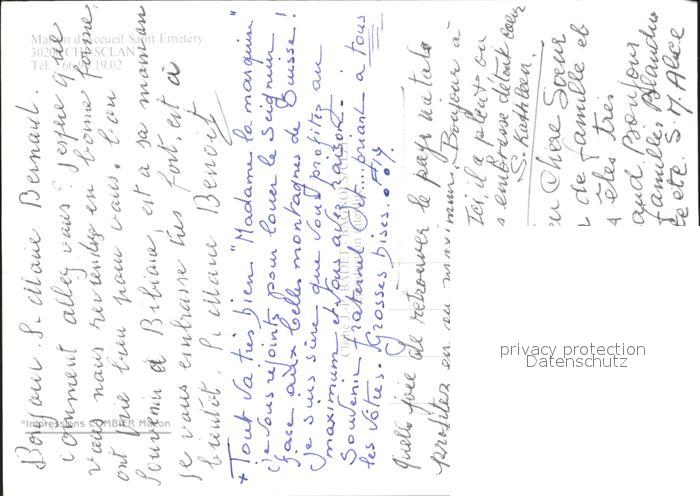 Maison d'Accueil Saint Emétery
30200 CHUSCLAN
Tél. 66.90.19.02
Bonjour S. Marie Bernard.
comment allez vous? J'espère que
vous nous reviendrez en bonne forme.
ont
bien pour vous. bon
souvenir à Bibiane, et à sa maman
je vous embrasse très fort, et à
bientôt. S. Marie Benoît
+ Tout va très bien "Madame la marquise"
je vous rejoints pour louer le Seigneur
face aux belles montagnes de Suisse!
je suis sûre que vous profitez au
maximum et vous avez raison.
Souvenir fraternel et priant à tous
les vôtres. Grosses bises.
quelle joie de retrouver le pays natal
profitez en au maximum. Bonjour à
Ici, il a plut ou
s embrasse de tout coeur
S. Kathleen
en Chère Soeur
de famille et
êtes très
and Bonjour
familles Blandin
S. M. Alice
*Impressions COMBIER Mâcon
privacy protection
Datenschutz